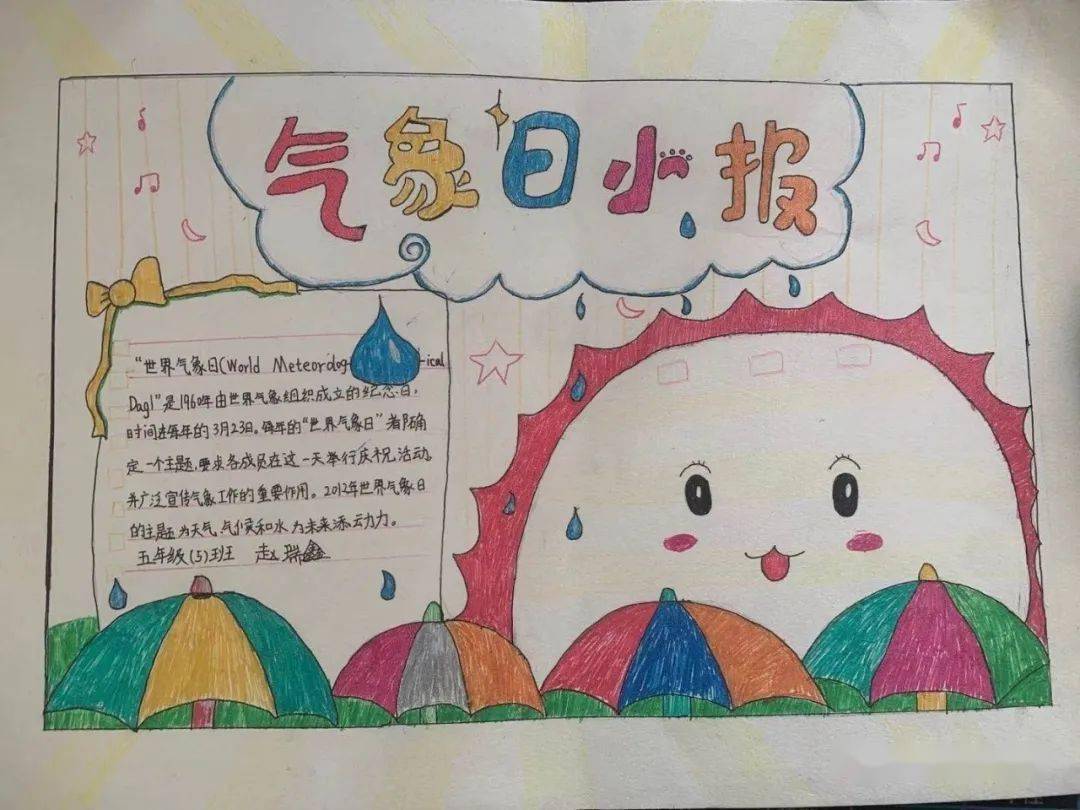 气象日小报
"世界气象日(World Meteorolog ical
Dag)"是1960年由世界气象组织成立的纪念日,
时间在每年的3月23日。每年的"世界气象日"都确
定一个主题,要求各成员在这一天举行庆祝活动,
并广泛宣传气象工作的重要作用。2012年世界气象日
的主题为天气、气候和水为未来添动力。
五年级(5)班 赵瑞鑫